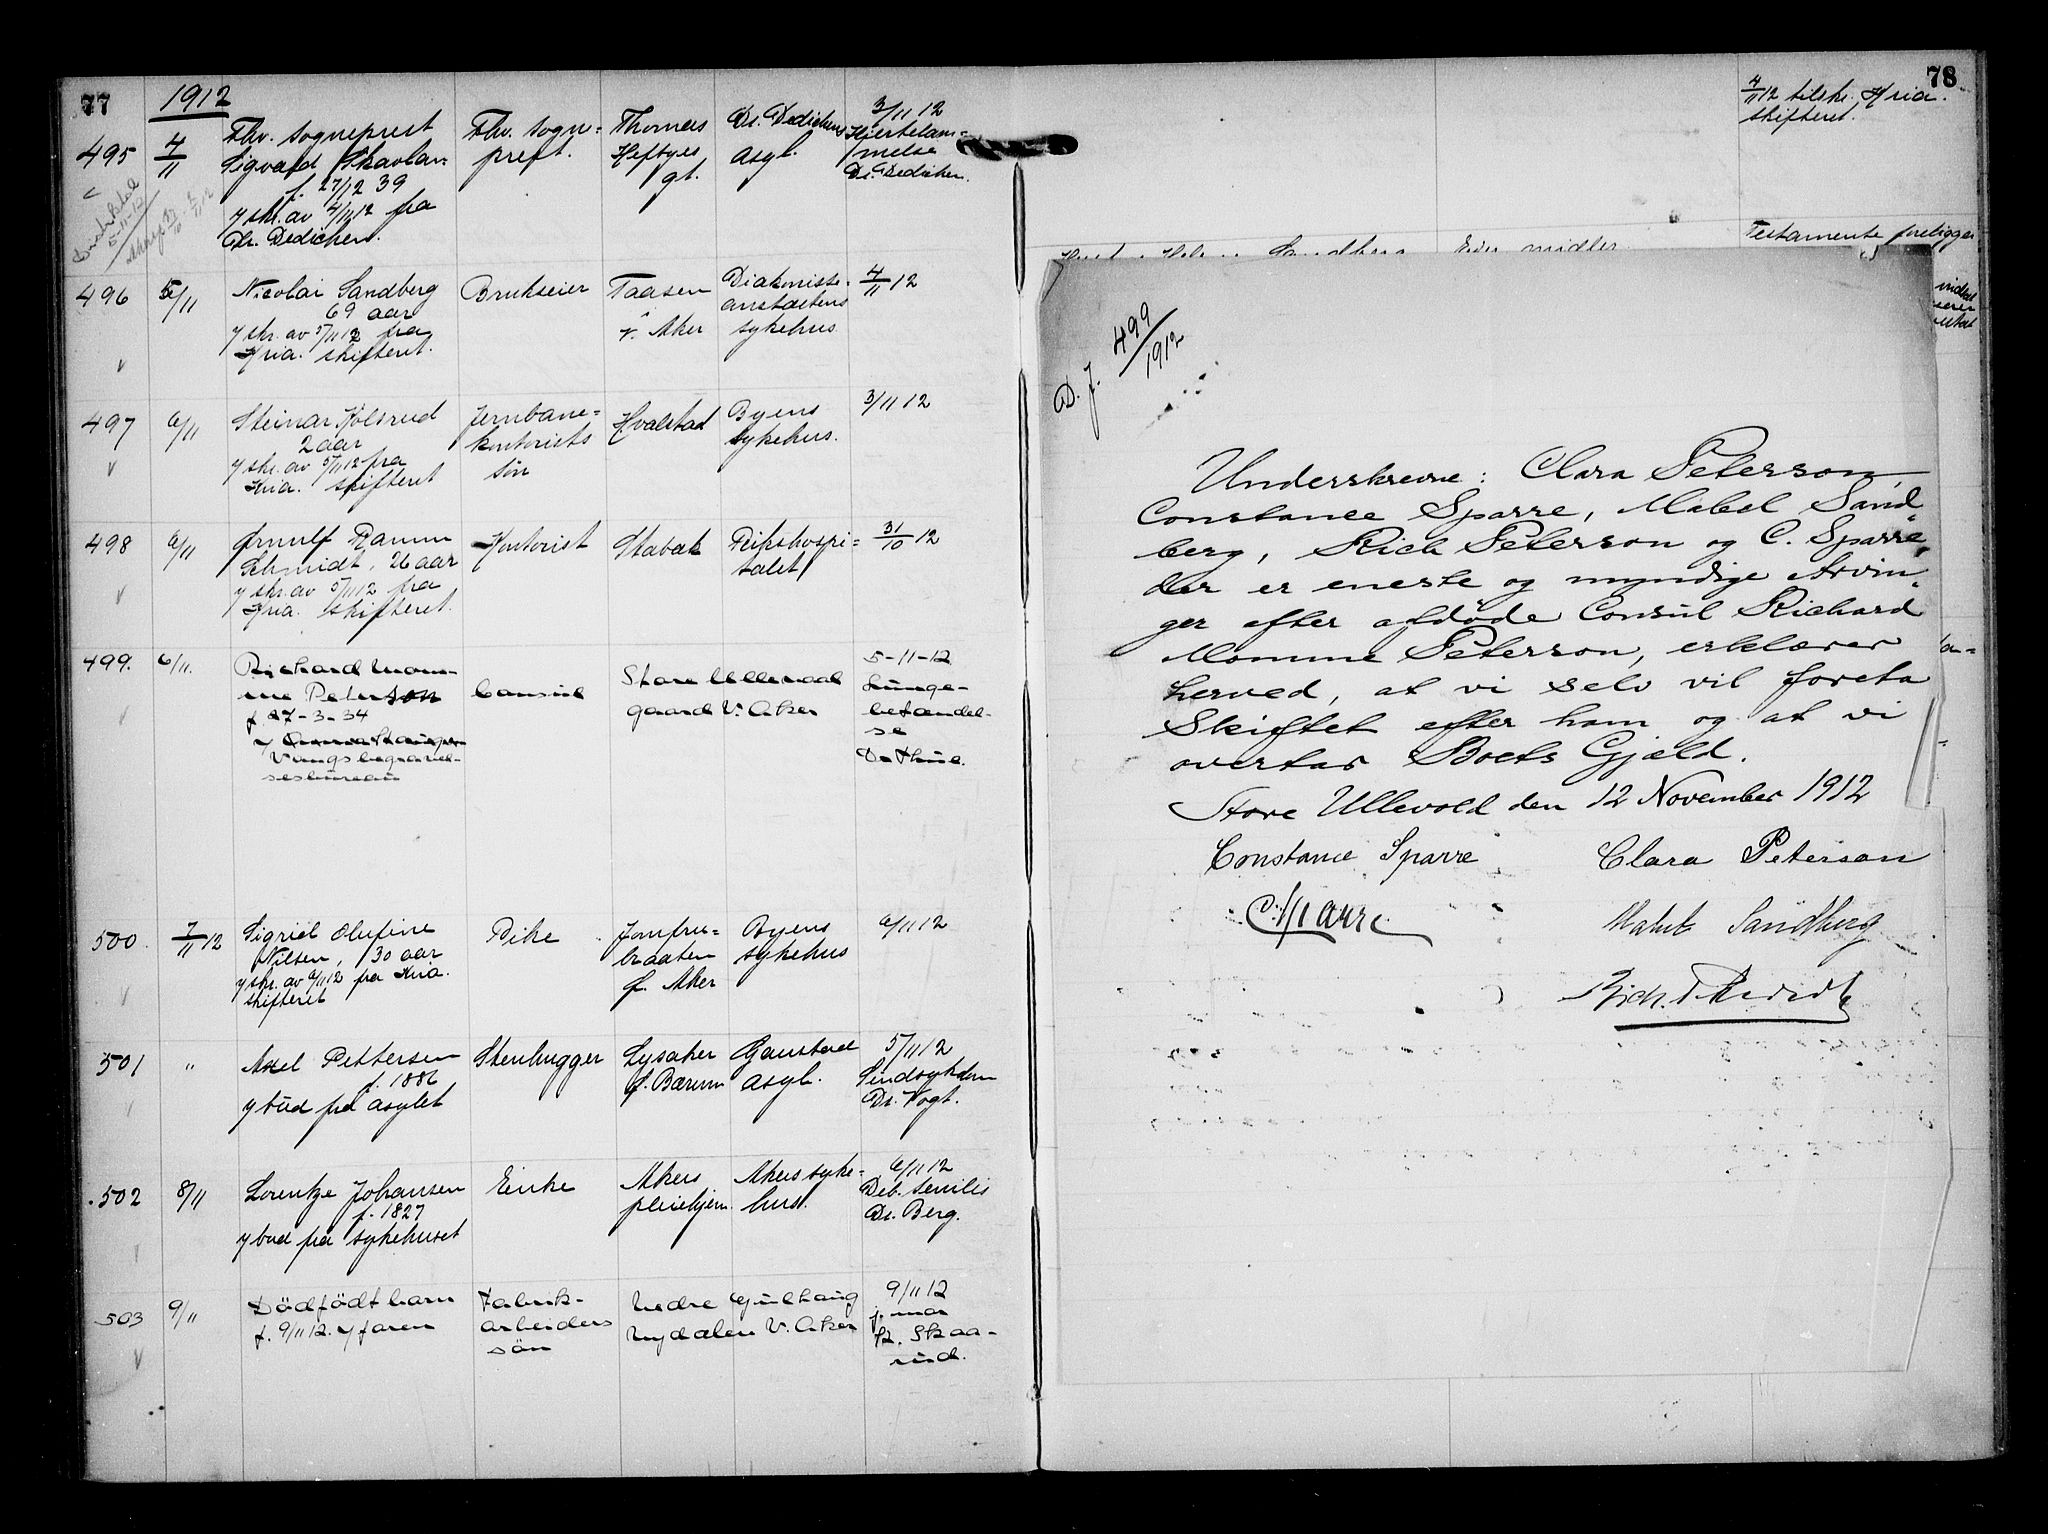 77
1912
495
4/11
Fhv. sogneprest
Sigvald Skavlan
f. 27/12 39
skr. av 4/11 12 fra
Dr. Dedichen.
Fhv. sogne-
prest.
Thomas
Heftyes
gt.
Dr. Dedichens
asyl.
3/11 12
Hjertelam-
melse
Dr. Dedichen.
496
5/11
Nicolai Sandberg
69 aar
skr. av 5/11 12 fra
Kria. skifteret.
Brukseier
Taasen
v. Aker
Diakonisse-
anstaltens
sykehus
4/11 12
497
6/11
Steinar Kolsrud
2 aar
skr. av 5/11 12 fra
Kria. skifteret
Jernbane-
kontorists
søn
Hvalstad
Byens
sykehus.
3/11 12
498
6/11
Ørnulf Ramm
Schmidt, 26 aar
skr. av 5/11 12 fra
Kria. skifteret.
Kontorist
Stabæk
Rikshospi-
talet
31/10 12
499.
6/11.
Richard Mom-
me Peterson
f. 27-3-34
Vangs begravel-
sesbureau
Consul
Store Ullevaal
gaard V. Aker
5-11-12
Lunge-
betændel-
se
Dr Thue.
500.
7/11 12
Sigrid Olufine
Nilsen, 30 aar
skr. av 6/11 12 fra Kria.
skifteret
Pike
Jomfru-
braaten
Ø. Aker
Byens
sykehus
6/11 12
501
"
Axel Pettersen
f. 1886
bud fra asylet
Stenhugger
Lysaker
Ø. Bærum
Gaustad
asyl.
5/11 12
Sindsykdom
Dr. Vogt.
502
8/11
Lorentze Johansen
f. 1827
bud fra sykehuset
Enke
Akers
pleiehjem
Akers syke-
hus.
6/11 12
Deb. senilis
Dr. Berg.
503
9/11
Dödfödt barn
f. 9/11 12. faren
Fabrik-
arbeiders
sön
Nedre Gulhaug
Nydalen V. Aker
9/11 12
j.mor
Skaa-
rud.
78
4/11 12 tilskr. Kria.
skifteret.
Testamente foreligger
Sandberg
Eier midler
D. J. 499/1912
Underskrevne: Clara Peterson,
Constance Sparre, Mabel Sand-
berg, Rich Peterson og C. Sparre,
der er eneste og myndige Arvin-
ger efter afdøde Consul Richard
Momme Peterson, erklærer
herved, at vi selv vil foreta
Skiftet efter ham og at vi
overtar Boets Gjæld.
Store Ullevold den 12 November 1912
Constance Sparre
Clara Peterson
C. Sparre
Mabel Sandberg